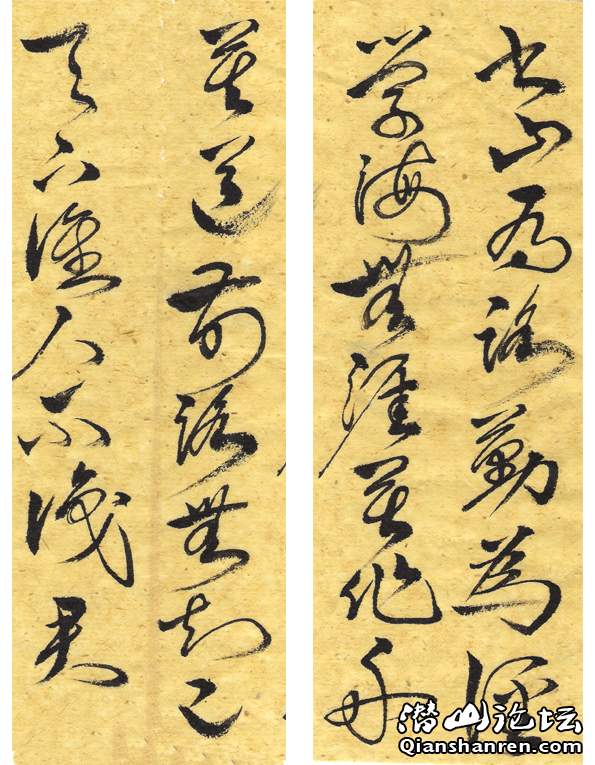 书山有路勤為径
学海無涯苦作舟
莫道前路無知己
天下谁人不识君
潜山论坛
Qianshanren.com